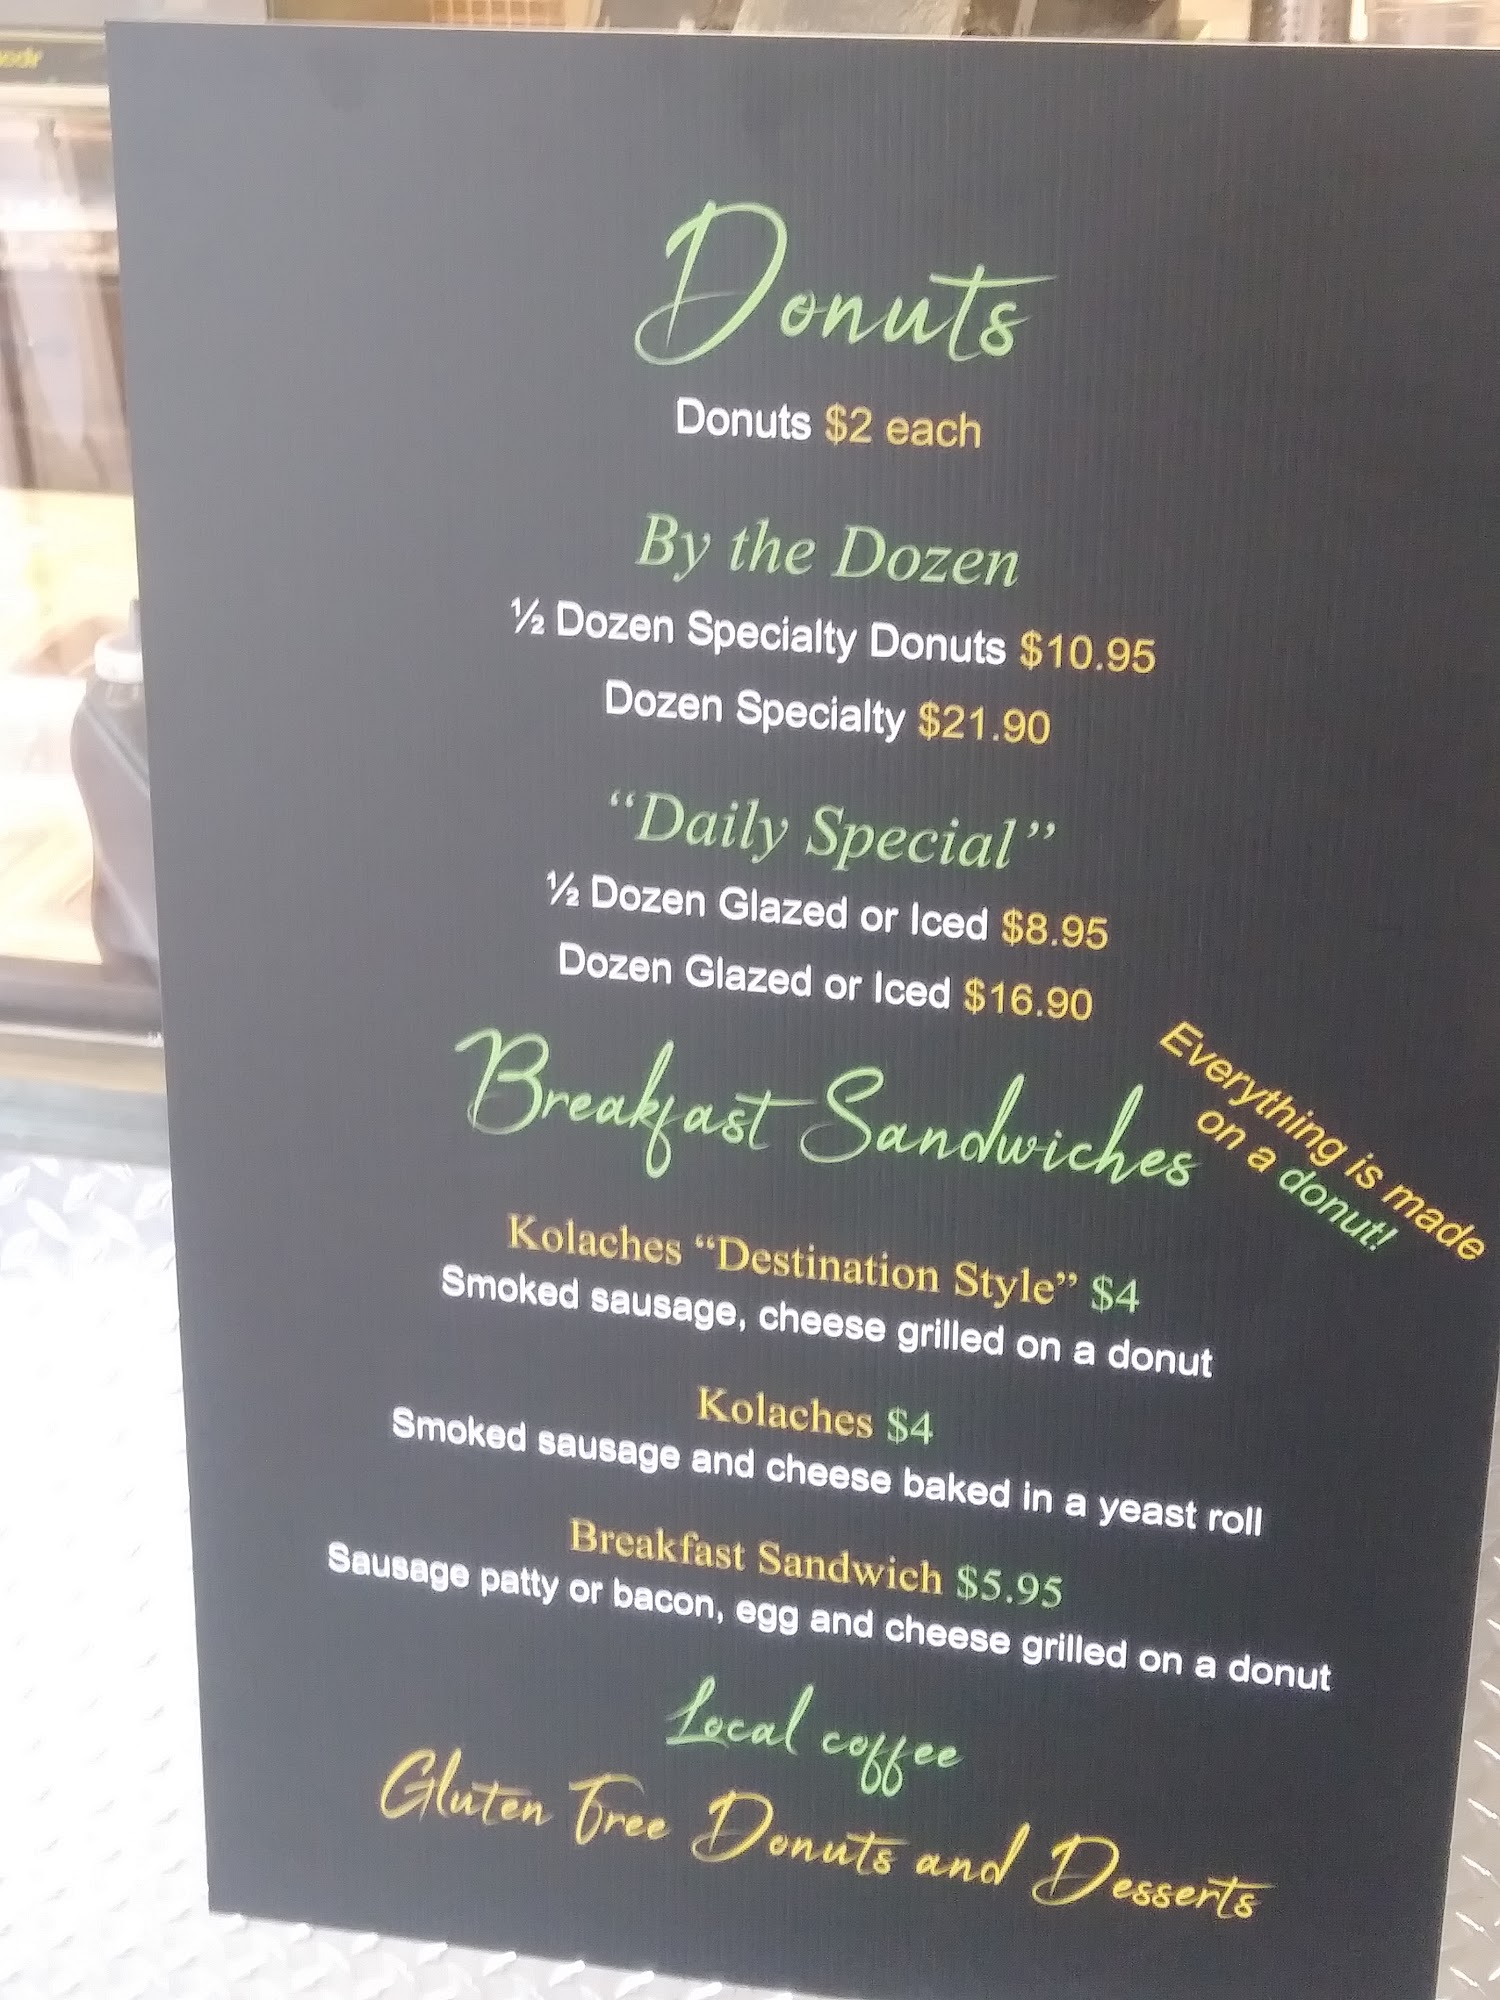 Donuts
Donuts $2 each
By the Dozen
½ Dozen Specialty Donuts $10.95
Dozen Specialty $21.90
“Daily Special”
½ Dozen Glazed or Iced $8.95
Dozen Glazed or Iced $16.90
Breakfast Sandwiches
Everything is made
on a donut!
Kolaches “Destination Style” $4
Smoked sausage, cheese grilled on a donut
Kolaches $4
Smoked sausage and cheese baked in a yeast roll
Breakfast Sandwich $5.95
Sausage patty or bacon, egg and cheese grilled on a donut
Local coffee
Gluten Free Donuts and Desserts